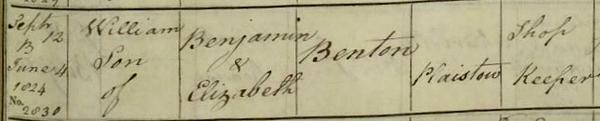 Septr 12
B
June 4
1824
No.
2830
William
Son
of
Benjamin
&
Elizabeth
Benton
Plaistow
Shop
Keeper